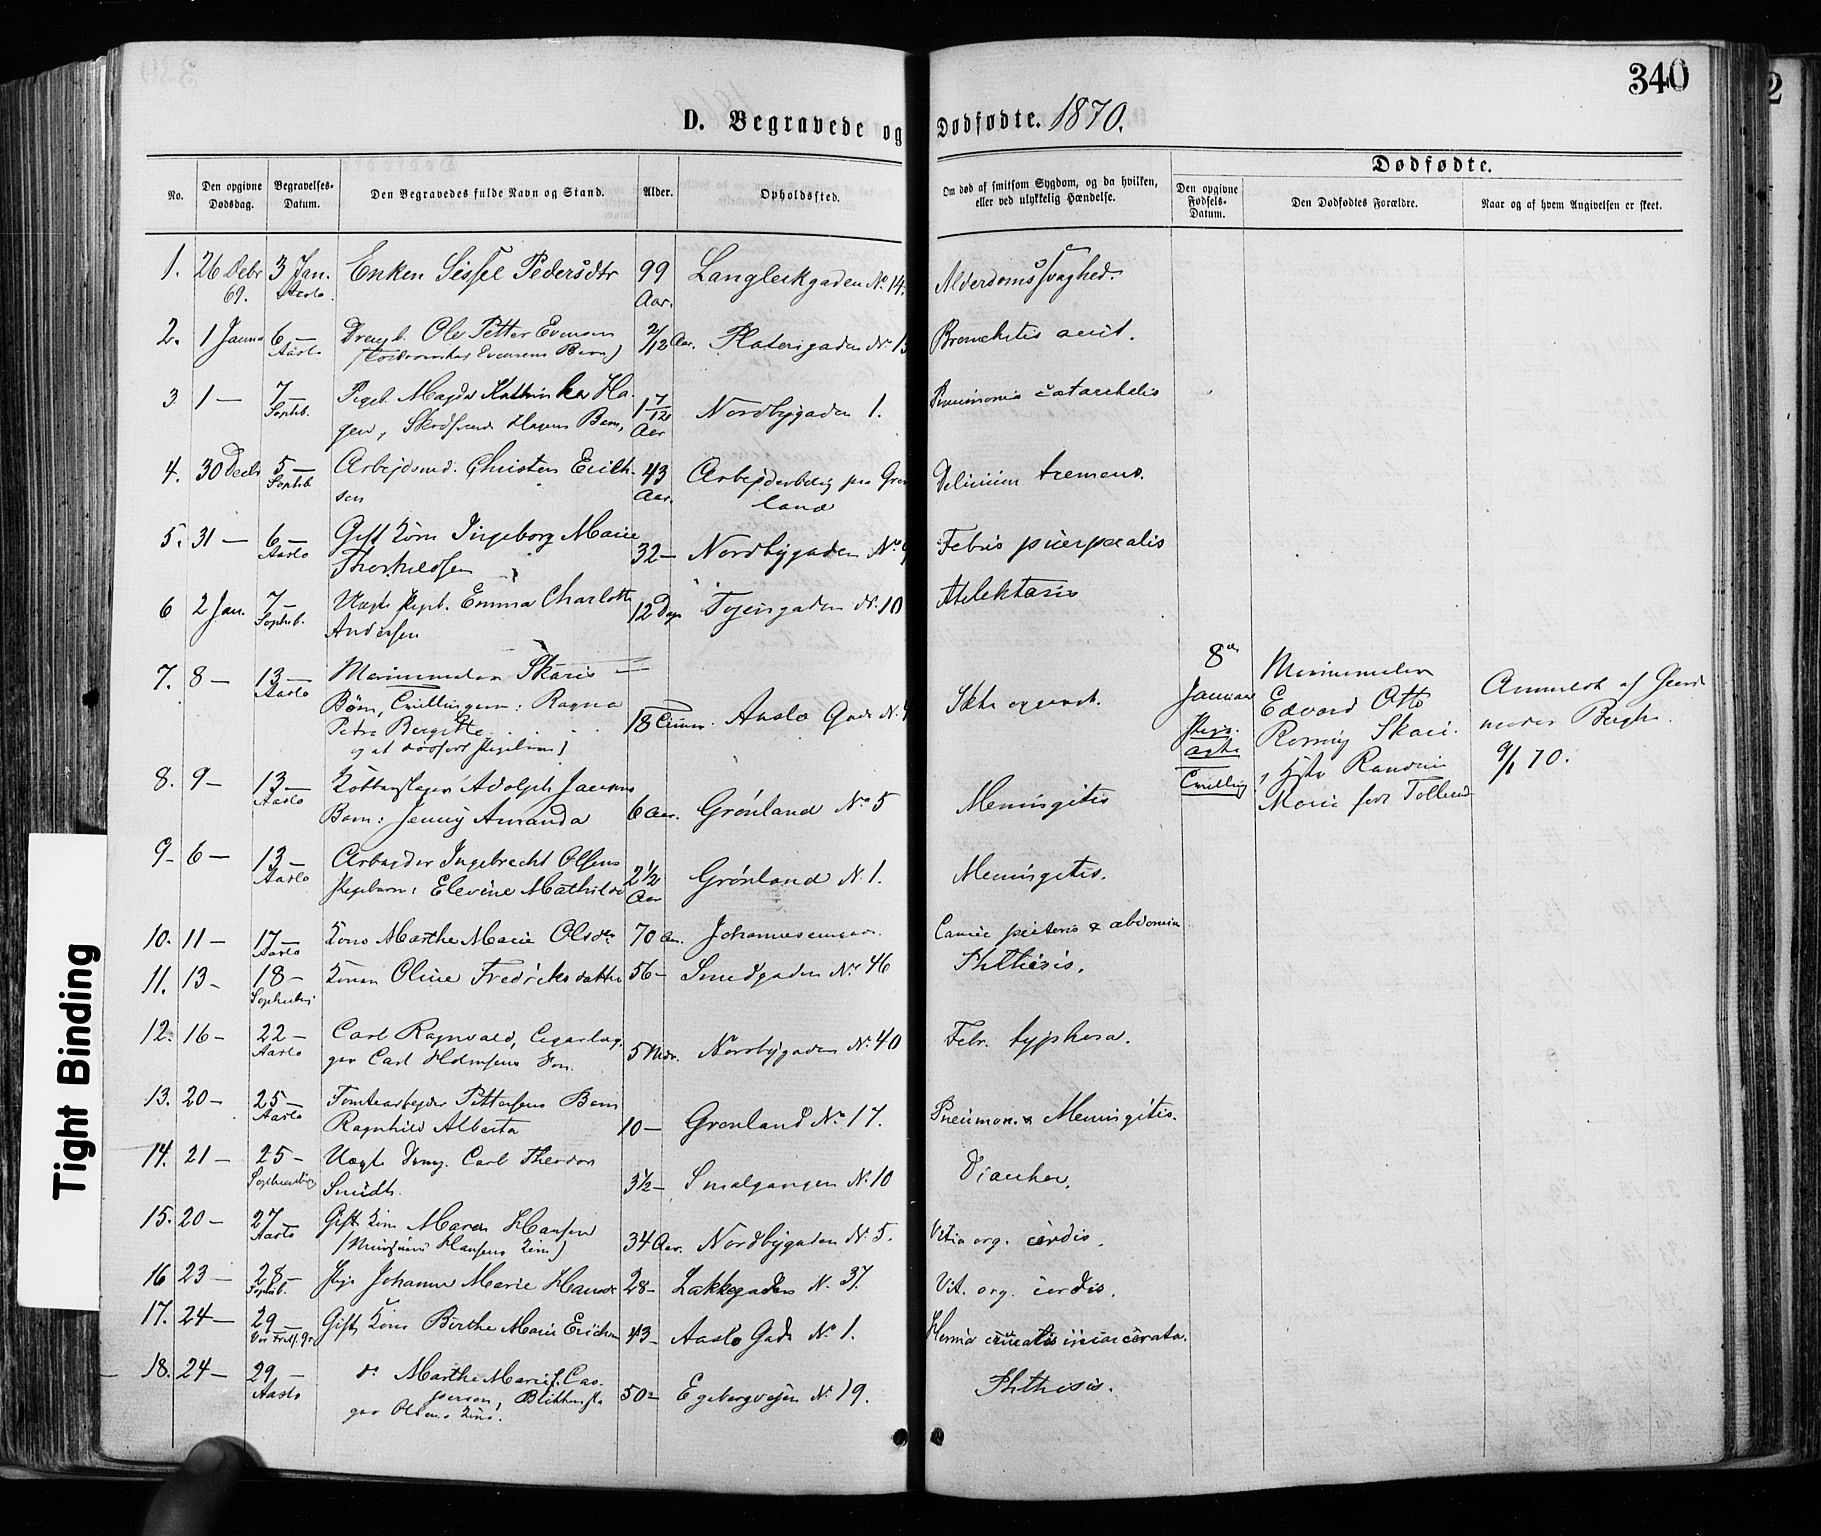 340
D. Begravede og Dødfødte. 1870.
No.
Den opgivne Dødsdag.
Begravelses-Datum.
Den Begravedes fulde Navn og Stand.
Alder.
Opholdssted.
Om død af smitsom Sygdom, og da hvilken, eller ved ulykkelig Hændelse.
Dødfødte.
Den opgivne Fødsels-Datum.
Den Dødfødtes Forældre.
Naar og af hvem Angivelsen er skeet.
1. 26 Debr 69. 3 Jan. Aaslo. Enken Sissel Pedersdtr 99 Aar. Langleikgaden No 14. Alderdomssvaghed.
2. 1 Januar 6 — Aaslo Drengb. Ole Petter Evensen
Evensens Barn) 2/12 Aar. Platousgaden No 1 Bronchitis acut.
3 1 — 7 — Sophb. Pigeb. Magda Kathinka Ha-
gen, Hagens Barn, 1 7/12 Aar Nordbygaden 1. Pneumonia catarrhalis
4. 30 Decbr 5 — Sophb. Arbejdsmd. Christen Erich-
sen 43 Aar. Arbejderbolig paa Grøn
land Delirium tremens.
5. 31 — 6 — Aaslo Gift Kone Ingeborg Marie
Thorkildsen 32 — Nordbygaden No 9 Febris puerperalis
6 2 Jan. 7 — Sophb. Uægte Pigeb. Emma Charlotte
Andersen 12 Dage Tøiengaden No 10 Atelektasis
7. 8 — 13 — Aaslo Skaris
Børn, Tvillingerne: Ragna
Petra Bergitte
og et dødfødt Pigebarn) 18 Timer. Aaslo Gade No Ikke opgivet.
8de
Januar
Pige.
ægte
Tvilling
Edvard Otto
Ronning Skari
Hustru Randine
Marie født
Anmeldt af Gjord
moder Bergh.
9/1 70.
8. 9 — 13 — Aaslo Kobberslager Adolph Jansens
Barn: Jenny Amanda 6 Aar. Grönland No 5 Meningitis
9 — 6 — 13 — Aaslo Arbejder Ingebrecht Olsens
Pigebarn: Elevine Mathilde 2 1/2 Aar Grönland No 1. Meningitis.
10. 11 — 17 — Aaslo Kone Marthe Marie Olsdtr 70 Aar. Cancer & abdomin
11. 13 — 18 — Konen Oline Fredriksdatter 56 — Smedgaden No 46 Phthisis.
12. 16 — 22 — Aaslo Carl Ragnvald, Cigarmag
ger Carl Holmsens Søn. 5 Mdr. Nordbygaden No 40 Febr. typhosa.
13. 20 — 25 — Aaslo Tomtearbejder Pettersens Barn
Ragnhild Alberta 10 — Grønland No 17. Pneumon. & Meningitis.
14. 21 — 25 — Uægte Dreng. Carl Theodor
Smidth. 3 1/2 — Smalgangen No 10 Diarrhoe.
15. 20 — 27 — Aaslo Gift Kone Maren Hansen
(Hansens Kone) 34 Aar. Nordbygaden No 5. Vitia org. cordis.
16 23 — 28 — Sophb. Pige Johanne Marie Hansen 28 — Lakkegaden No 37. Vit. org. cordis.
17. 24 — 29 — Vor Frels. Gr. Gift Kone Birthe Marie Erichsen 43 — Aaslo Gade No 1. Hernia cruralis incarcerata.
18. 24 — 29 — Aaslo do Marthe Marie f. Cas-
persen, Blikkensla
ger Olsens Kone. 50 — Egebergvejen No 19. Phthisis.
Tight Binding